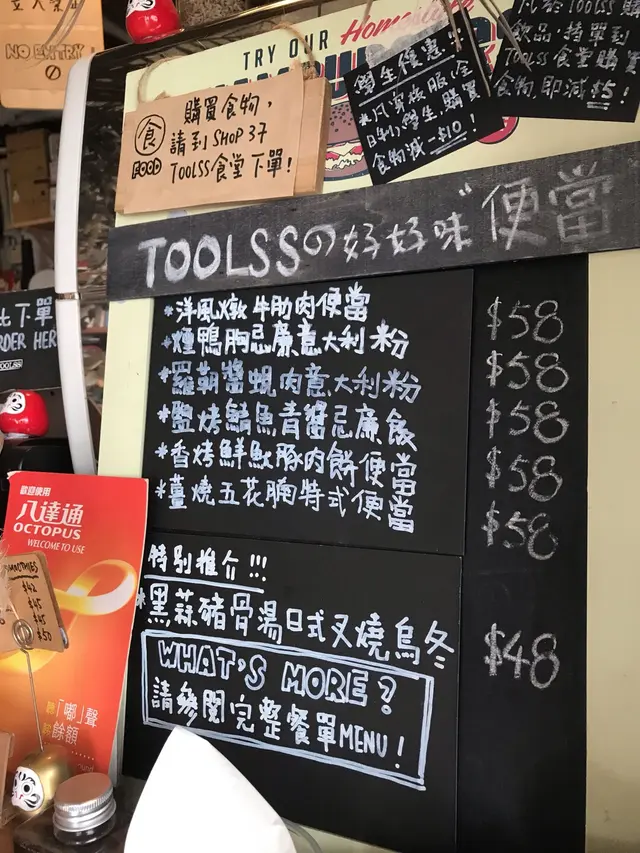 NO ENTRY
TRY OUR Homestyle
食
FOOD
購買食物，
請到 SHOP 37
TOOLSS食堂下單！
學生優惠！！
*凡穿校服/全
日制學生,購買
食物減 -$10！
凡於TOOLSS購
飲品，持單到
TOOLSS食堂購買
食物，即減$5！
TOOLSSの好好味"便當"
*洋風燉牛肋肉便當 $58
*煙鴨胸忌廉意大利粉 $58
*羅勒醬蜆肉意大利粉 $58
*鹽烤鯖魚青醬忌廉飯 $58
*香烤鮮魷豚肉餅便當 $58
*薑燒五花腩特式便當
特別推介!!!
*黑蒜豬骨湯日式叉燒烏冬 $48
WHAT'S MORE?
請參閱完整餐單MENU！
下單
ORDER HERE
TOOLSS
歡迎使用
八達通
OCTOPUS
WELCOME TO USE
聽「嘟」聲
餘額
SMOOTHIES